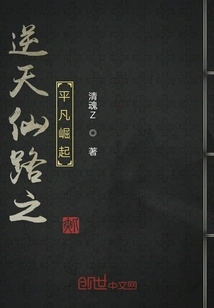 逆天仙路之
平凡崛起
清魂Z◎著
创世中文网